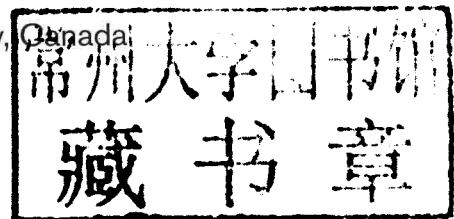 y, Canada
常州大学图书馆
藏书章